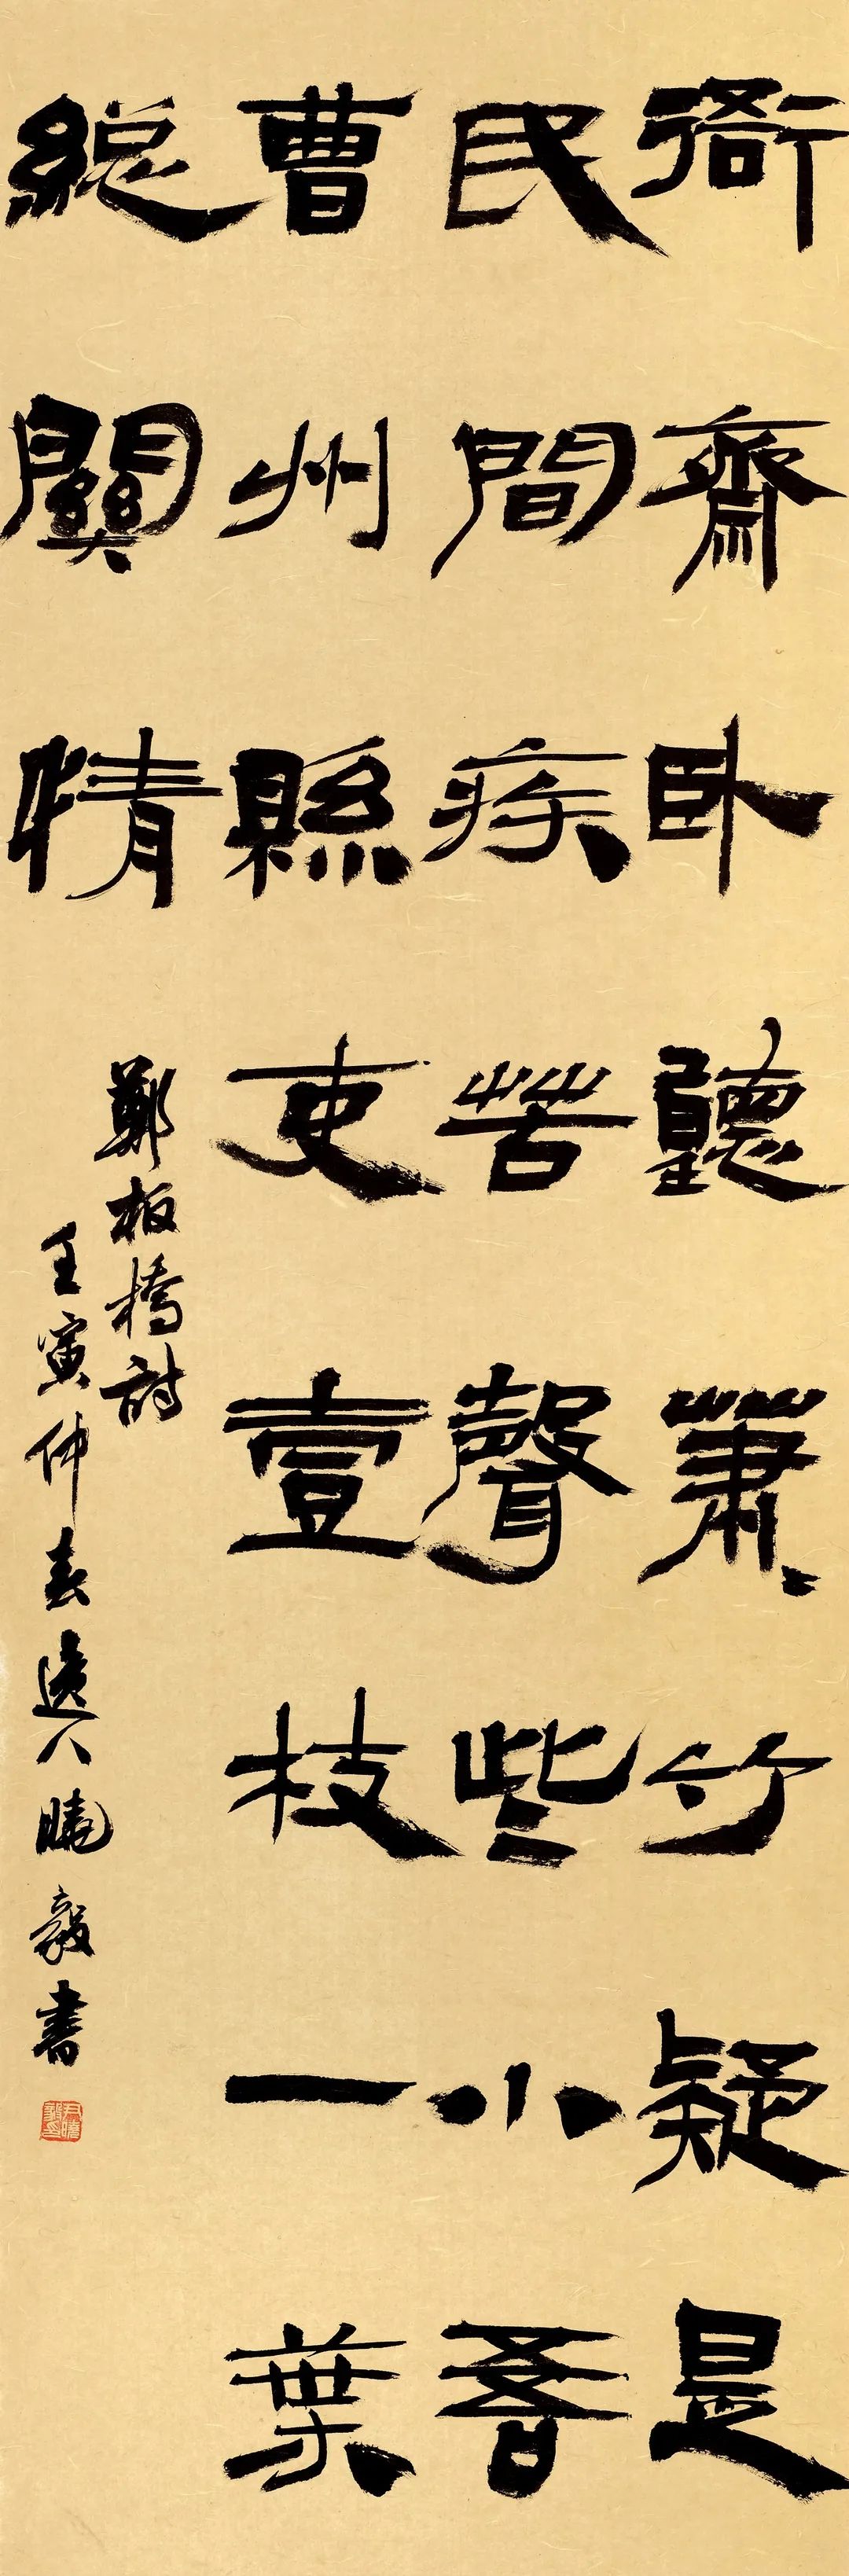 衙齋卧聽蕭〻竹疑是
民間疾苦聲些小吾
曹州縣吏壹枝一葉
總關情
鄭板橋詩
壬寅仲春人曉毅書
尹曉毅印